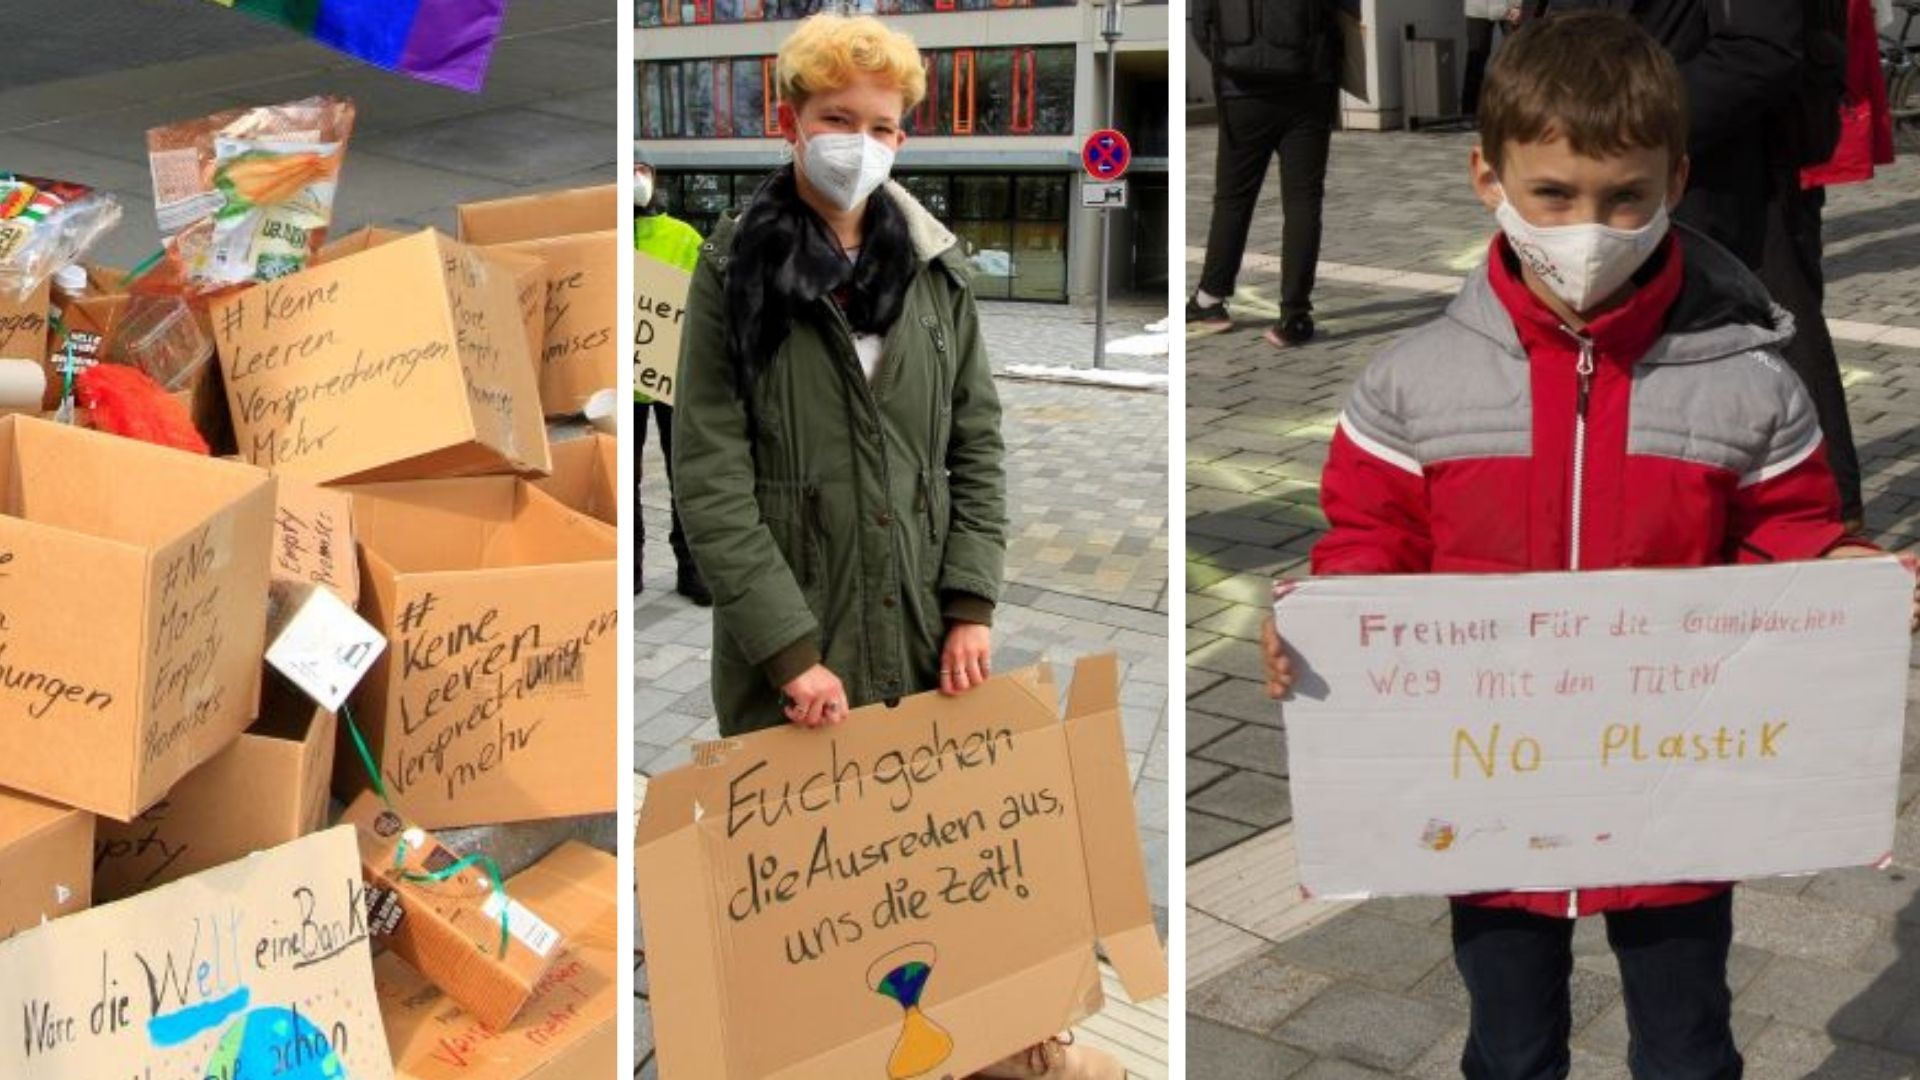 # Keine
Leeren
Versprechungen
Mehr
#No
More
Empty
Promises
#No
More
Empty
Promises
Empty
Promises
#
Keine
Leeren
Versprechungen
mehr
hungen
Wäre die Welt eine Bank
schon
mehr!
Euch gehen
die Ausreden aus,
uns die Zeit!
uer
D
ten
Freiheit Für die Gumibärchen
Weg mit den Tüten
No Plastik